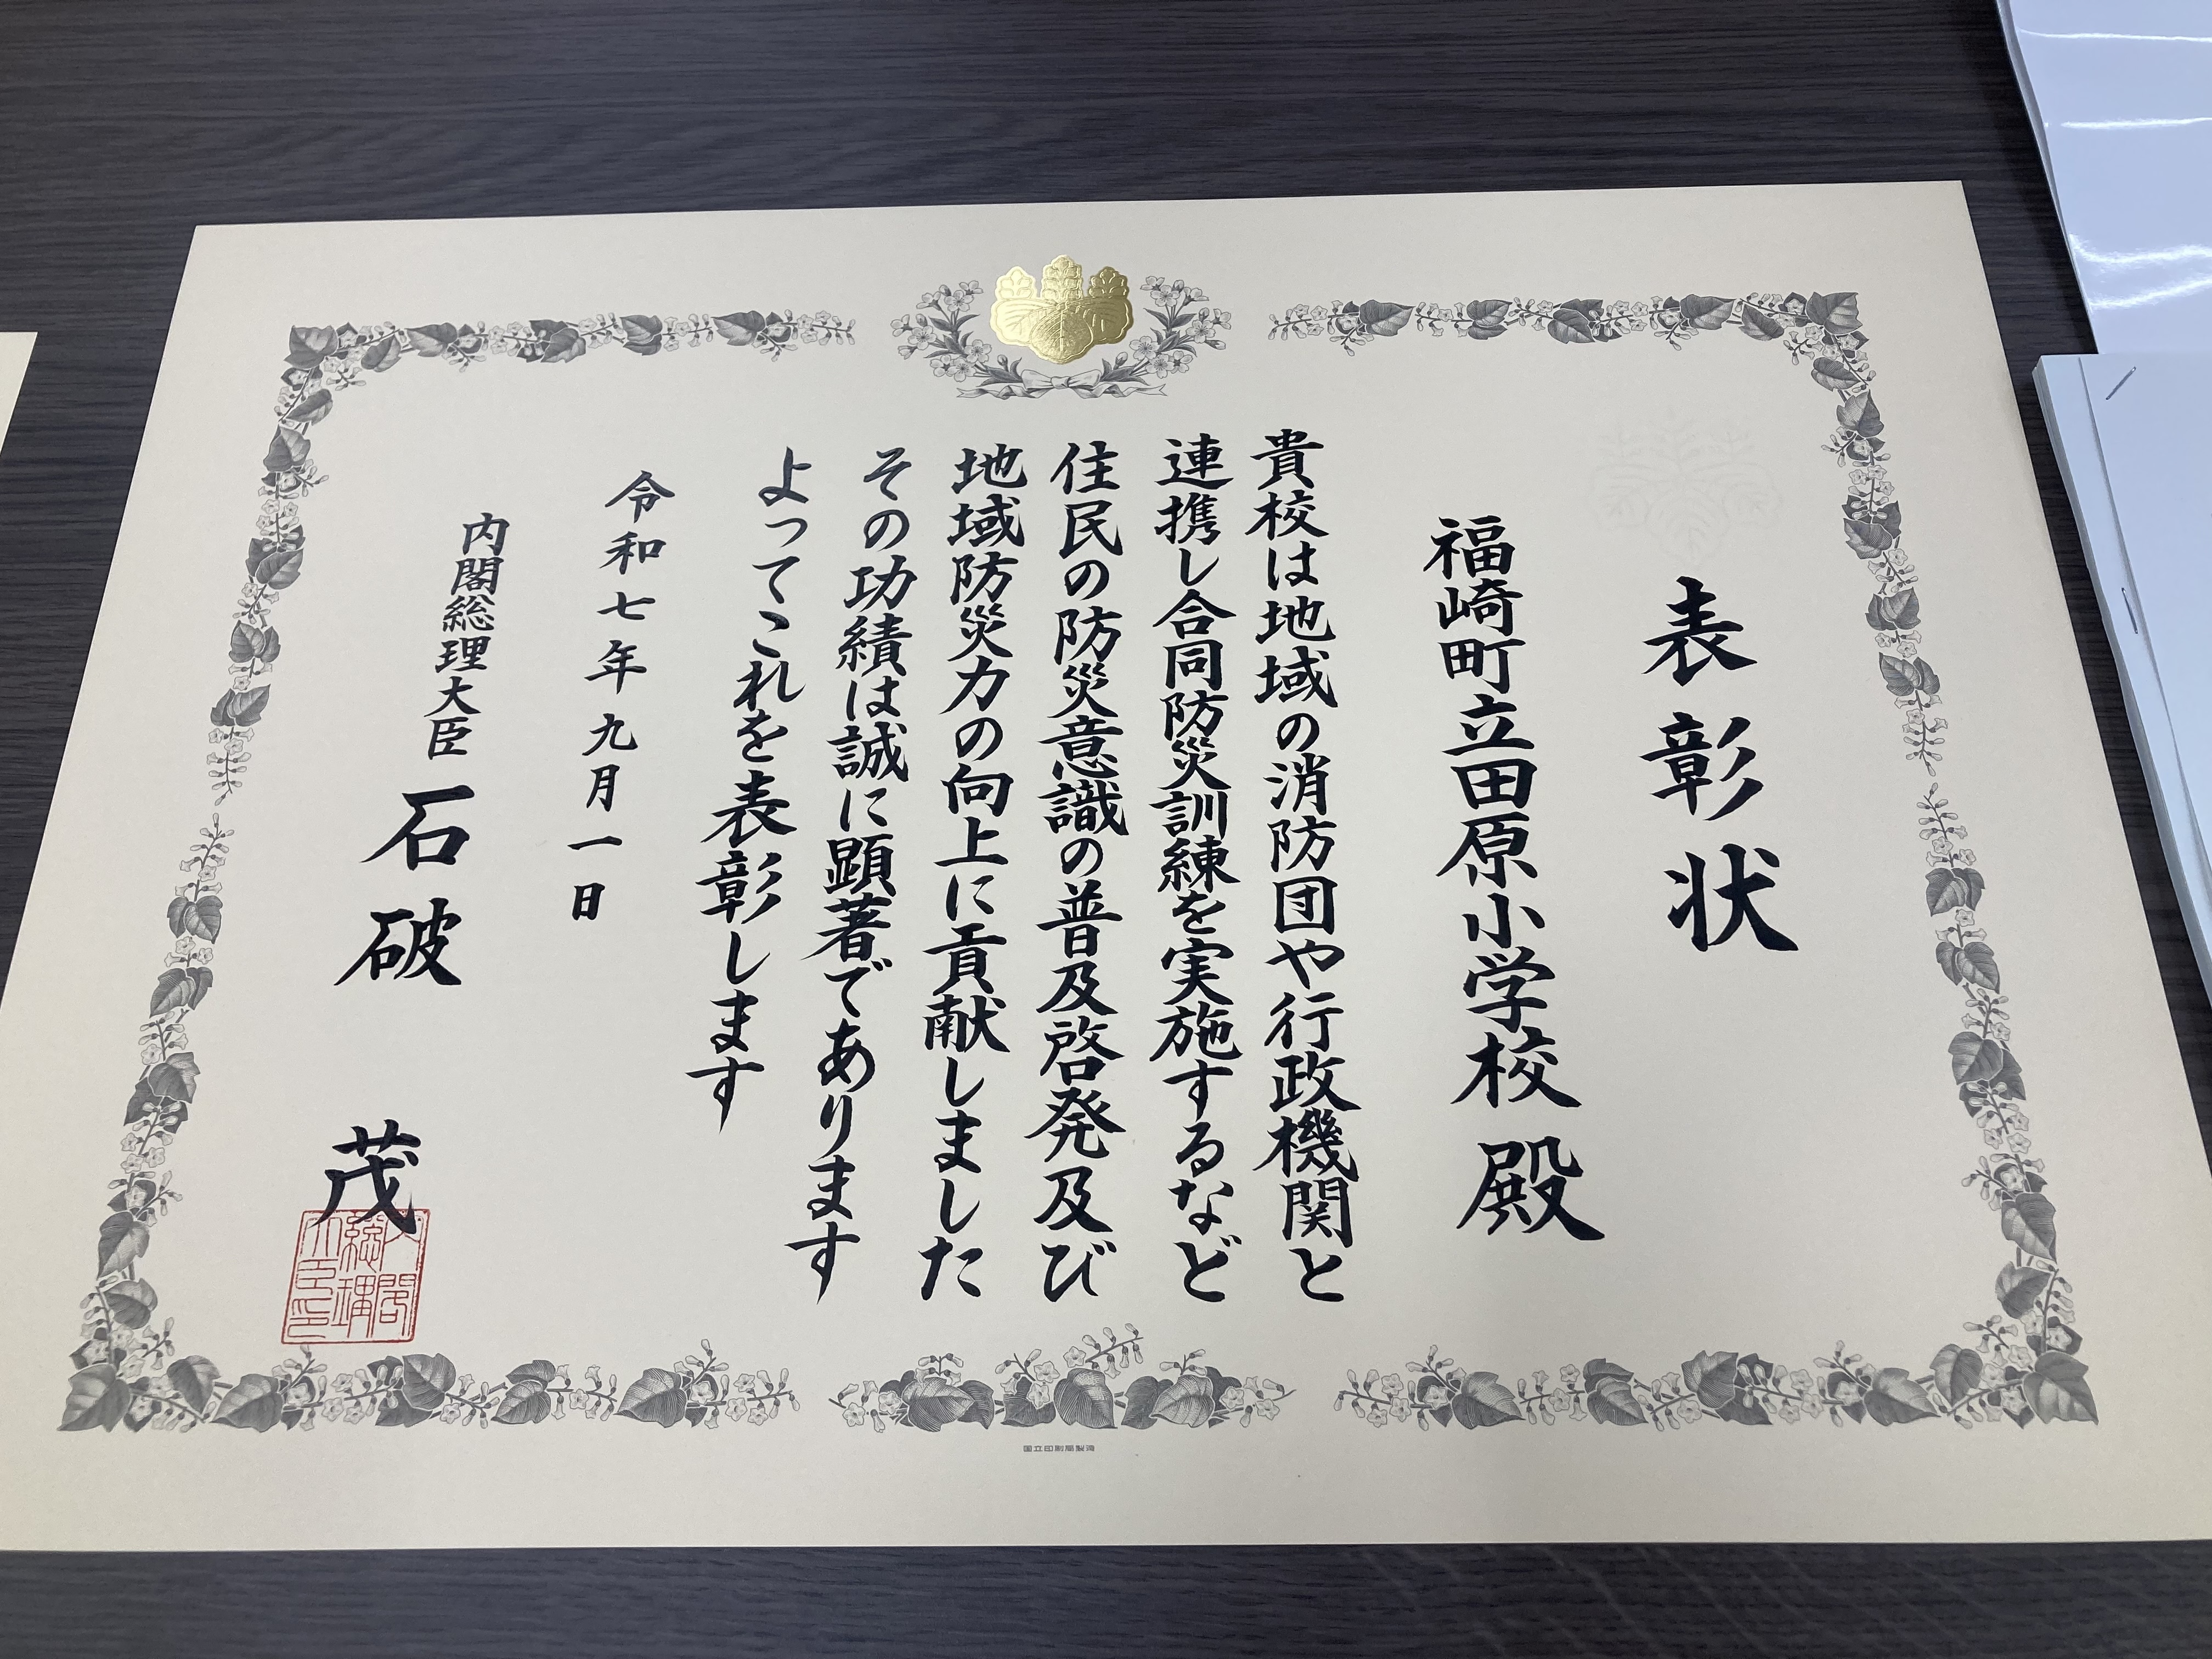 表彰状
福崎町立田原小学校 殿
貴校は地域の消防団や行政機関と
連携し合同防災訓練を実施するなど
住民の防災意識の普及啓発及び
地域防災力の向上に貢献しました
その功績は誠に顕著であります
よってこれを表彰します
令和七年九月一日
内閣総理大臣 石破 茂
内閣
総理
大臣印
国立印刷局製造